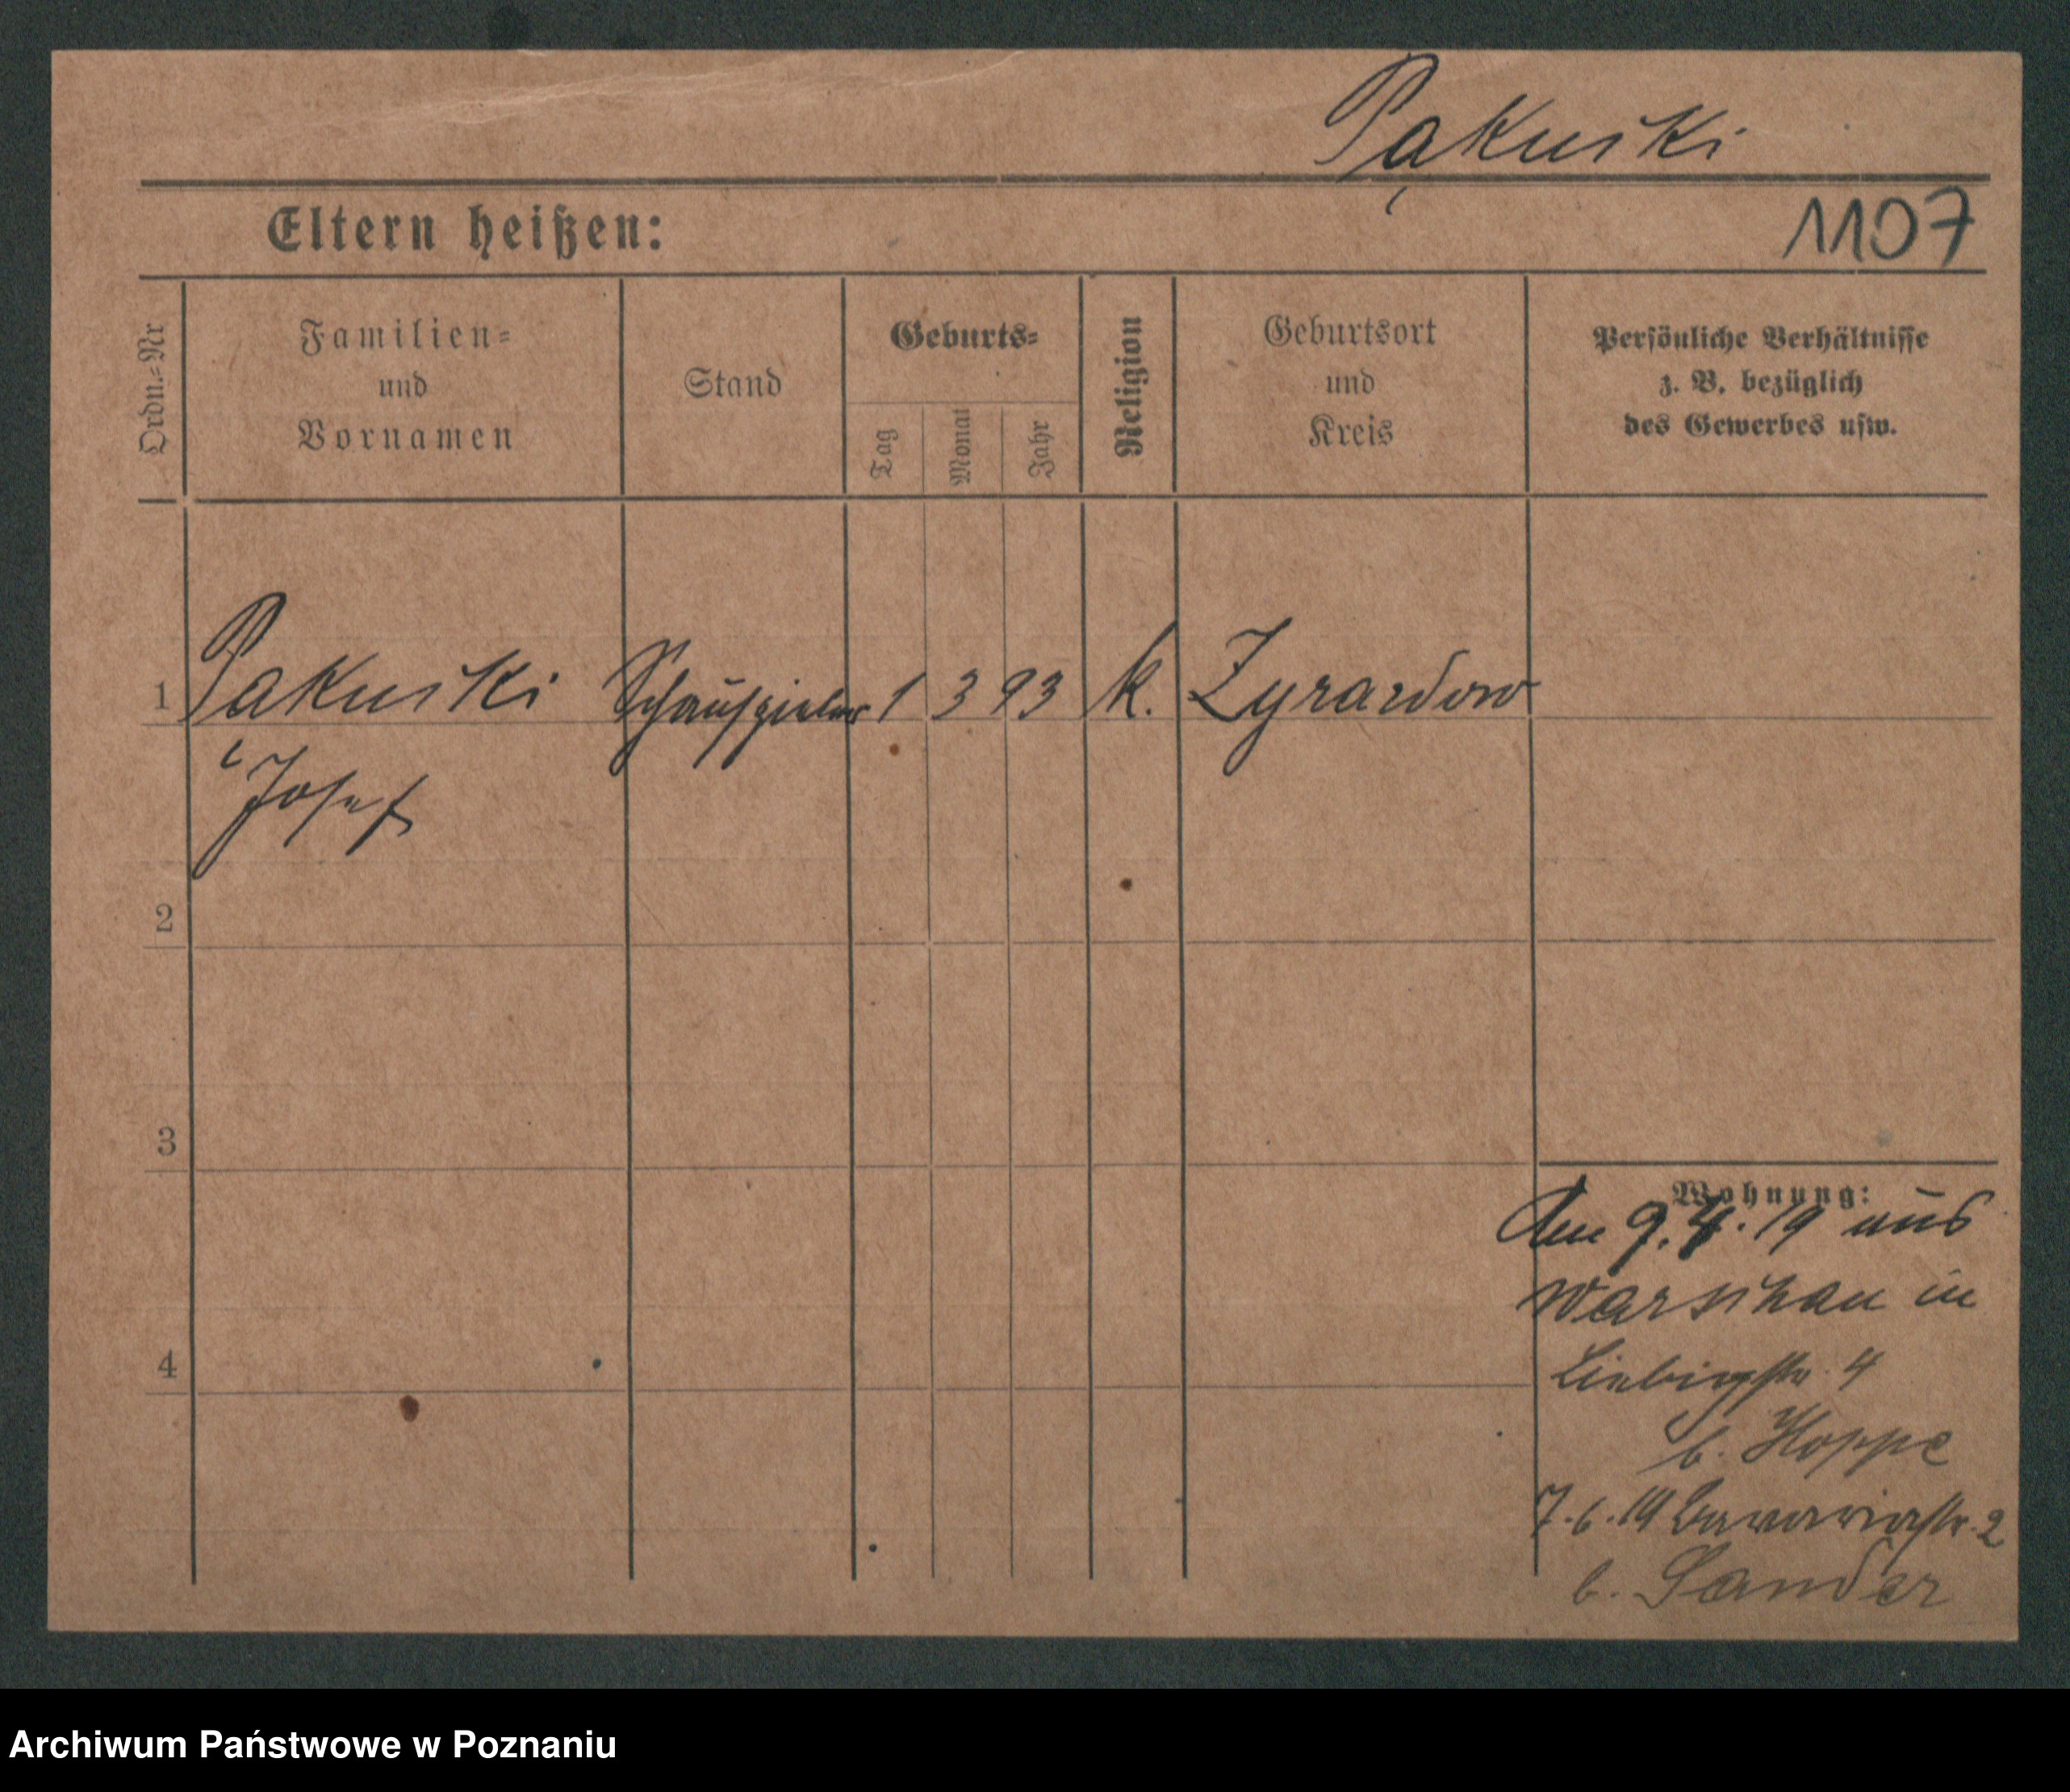 Pąkuski
Eltern heißen:
1107
Ordn.-Nr
Familien-
und
Vornamen
Stand
Geburts-
Tag
Monat
Jahr
Religion
Geburtsort
und
Kreis
Persönliche Verhältnisse
z. B. bezüglich
des Gewerbes usw.
1 Pąkuski Schauspieler 1 3 93 k. Zyrardow
Josef
2
3
4
Wohnung:
Am 9.4.19 aus
Warschau in
Liebigstr. 4
b. Hoppe
7.6.19 Bavariastr. 2
b. Sander
Archiwum Państwowe w Poznaniu